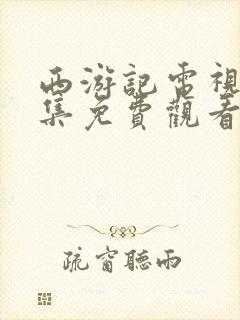 西游記電視
集免費觀看
疏窗聽雨